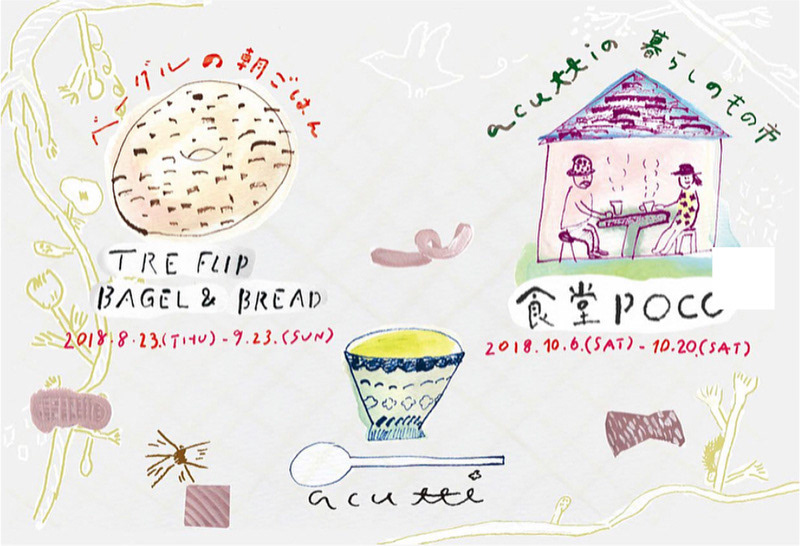 ベーグルの朝ごはん
TRE FLIP
BAGEL & BREAD
2018.8.23.(THU) - 9.23.(SUN)
acuttiの暮らしのもの市
食堂POCC
2018.10.6.(SAT) - 10.20.(SAT)
acutti